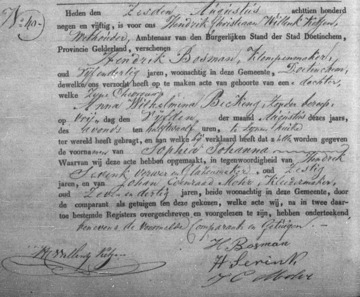 No. 40.
Heden den Zesden Augustus achttien honderd
negen en vijftig, is voor ons Hendrik Christiaan Willink
Wethouder, Ambtenaar van den Burgerlijken Stand der Stad Doetinchem,
Provincie Gelderland, verschenen
Hendrik Basman, Klompenmaker,
oud Vijfendertig jaren, woonachtig in deze Gemeente, Doetinchem,
dewelke ons verzocht heeft op te maken acte van geboorte van een dochter,
welke zijne Echtgenoot
Anna Wilhelmina Becking, zonder beroep
op Vrijdag den Vijfden der maand Augustus dezes jaars,
des avonds ten half uren, te zijnen huize
ter wereld heeft gebragt, en aan welke hij verklaard heeft te worden gegeven
de voornamen van Sophia Johanna
Waarvan wij deze acte hebben opgemaakt, in tegenwoordigheid van Hendrik
Serink Verwer en Glazemaker oud Zestig
jaren, en van Johan Coenraad Kleedermaker,
oud jaren, beide woonachtig in deze Gemeente, door
de comparant als getuigen ten deze gekozen, welke acte wij, na in twee daar-
toe bestemde Registers overgeschreven en voorgelezen te zijn, hebben onderteekend
benevens de voormelde Comparant en Getuigen.
H. Basman
H. Serink